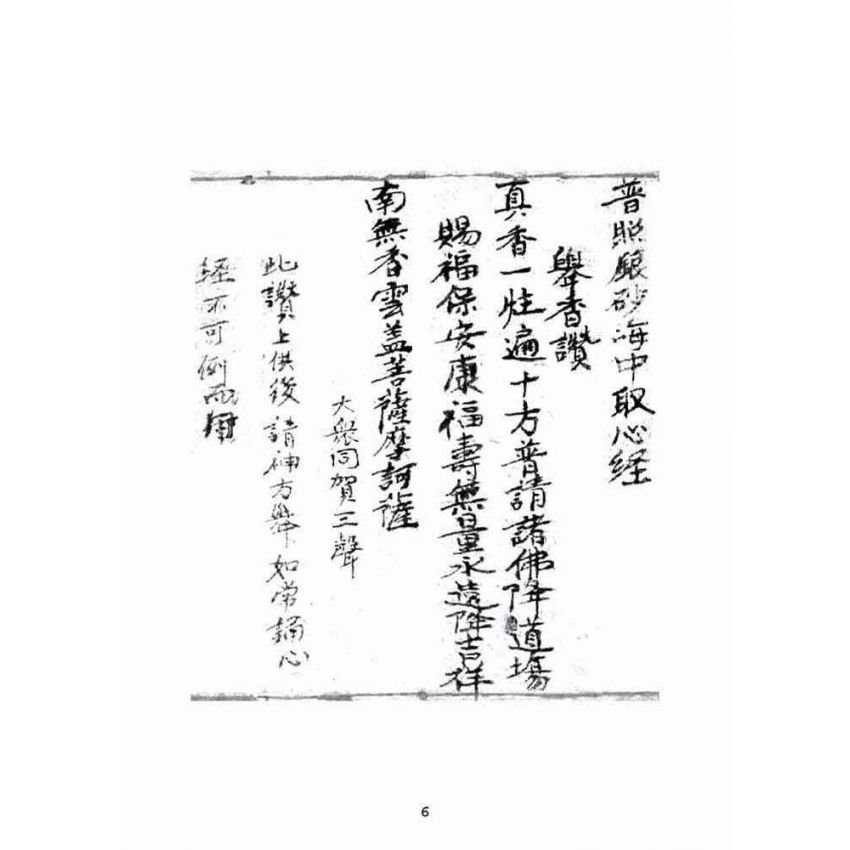 普照銀砂海中取心経
舉香讚
真香一炷遍十方普請諸佛降道場
賜福保安康福壽無量永遠降吉祥
南無香雲盖菩薩摩訶薩
大衆同賀三聲
此讚上供後請神方舉如常誦心
経不可例而用
6